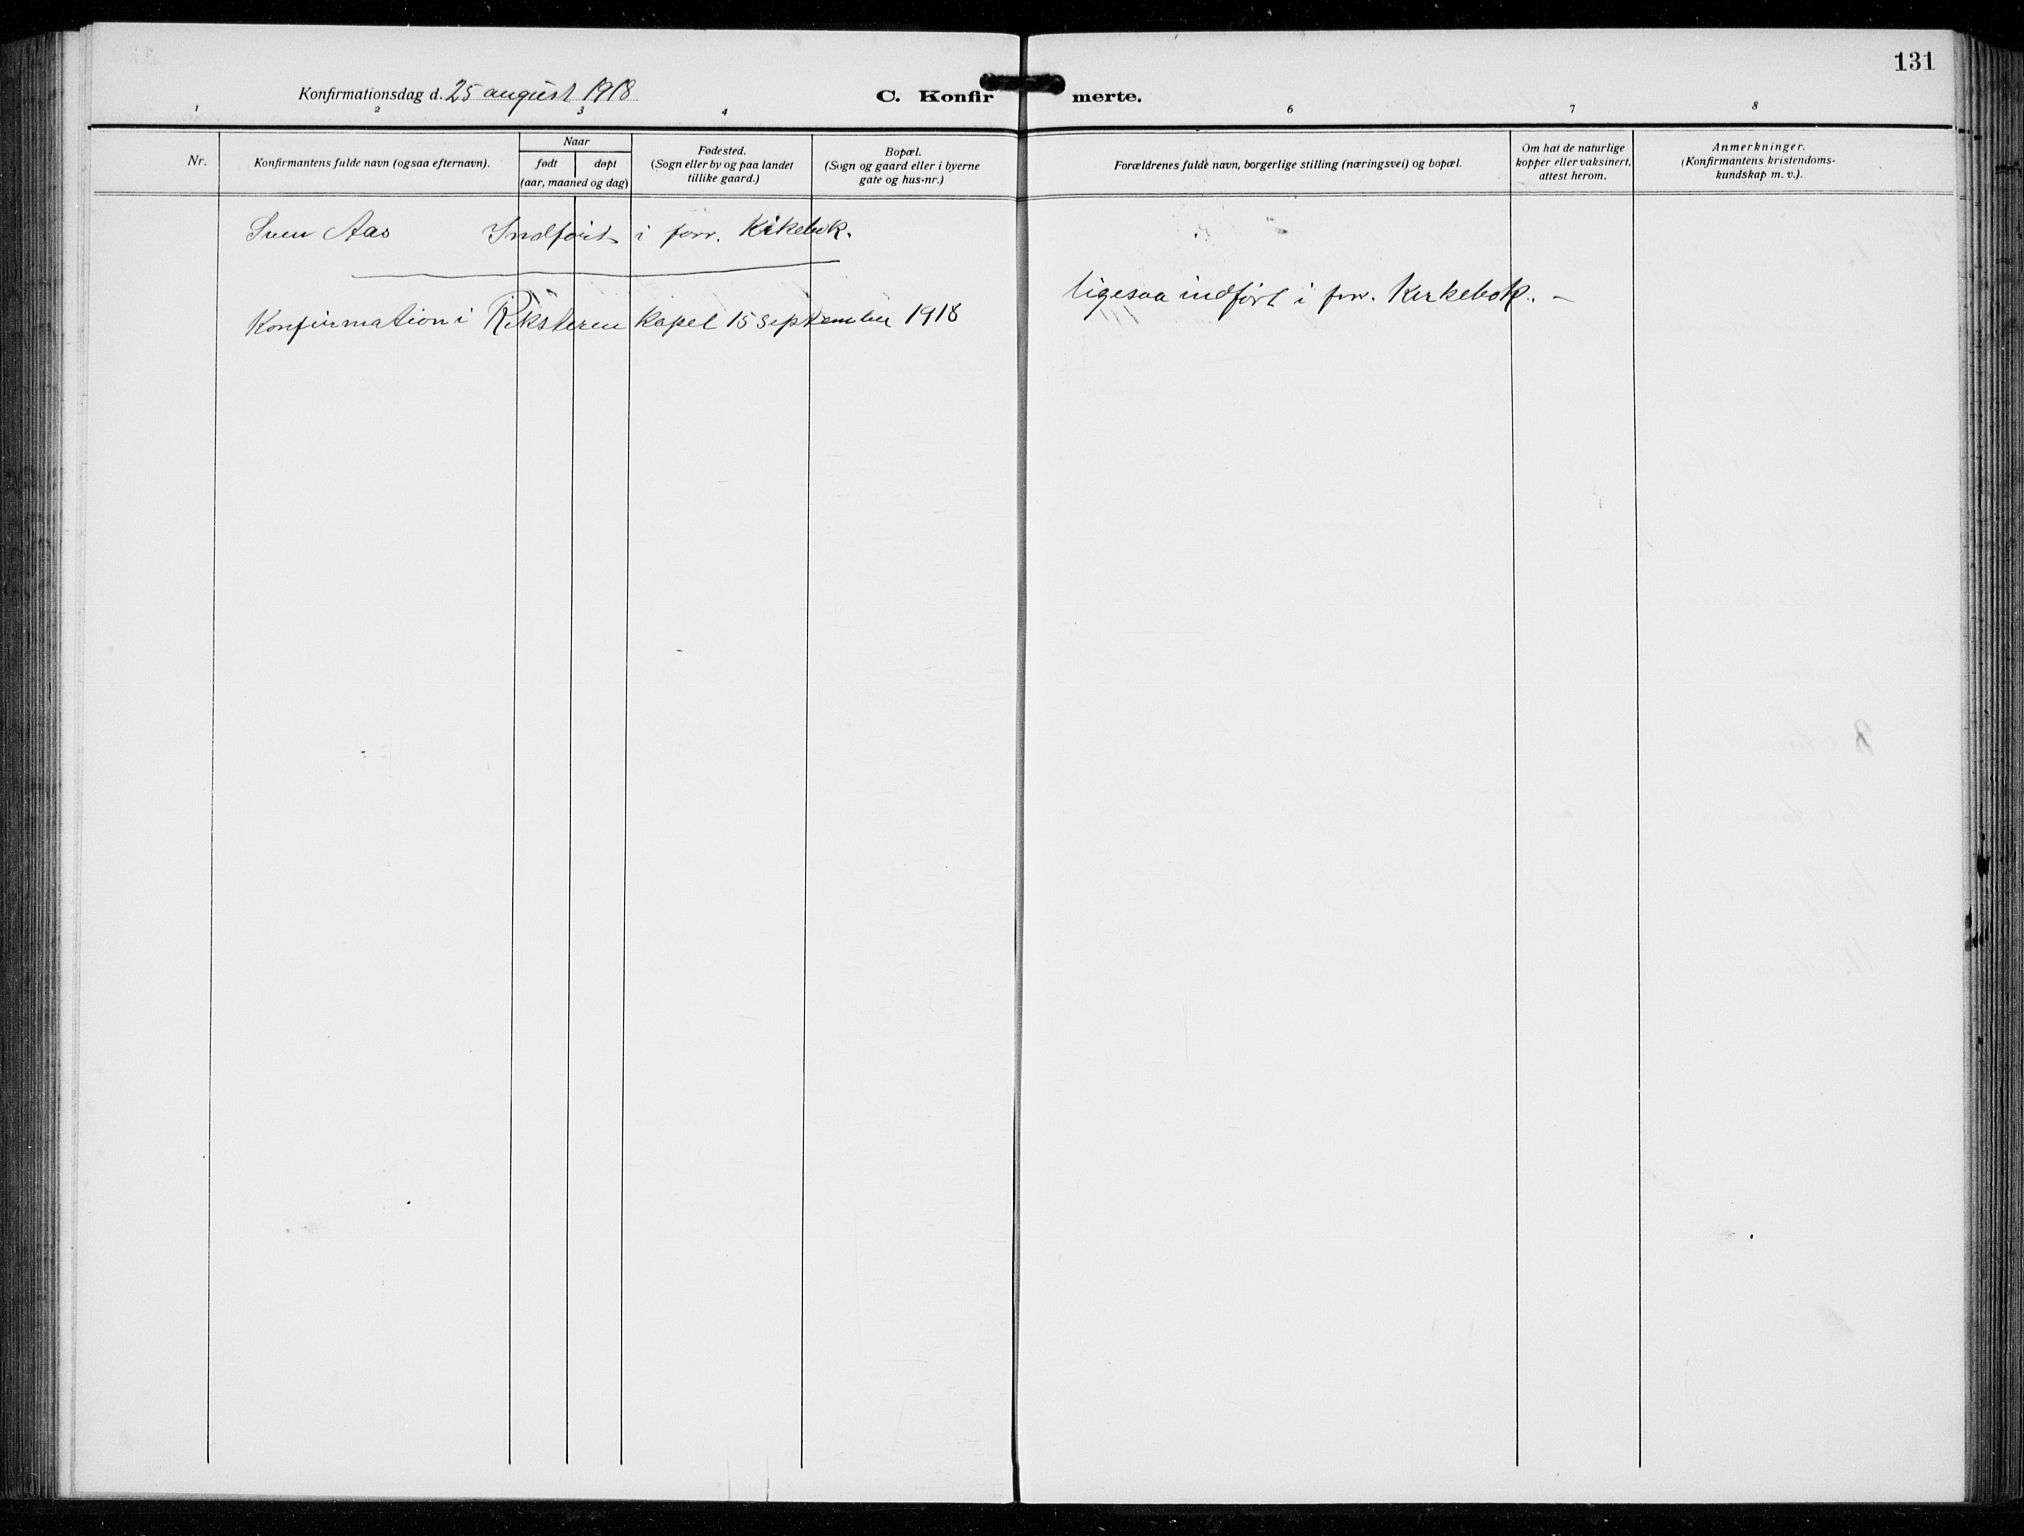 131
Konfirmationsdag d. 25 august 1918
C. Konfirmerte.
1 2 3 4 6 7 8
Nr.
Konfirmantens fulde navn (ogsaa efternavn).
Naar
født døpt
(aar, maaned og dag)
Fødested.
(Sogn eller by og paa landet
tillike gaard.)
Bopæl.
(Sogn og gaard eller i byerne
gate og hus-nr.)
Forældrenes fulde navn, borgerlige stilling (næringsvei) og bopæl.
Om hat de naturlige
kopper eller vaksinert,
attest herom.
Anmerkninger.
(Konfirmantens kristendoms-
kundskap m. v.).
Sven Aas Indført i forr. Kirkebok.
Konfirmation i Riksteren kapel 15 september 1918
ligesaa indført i forr. Kirkebok. –